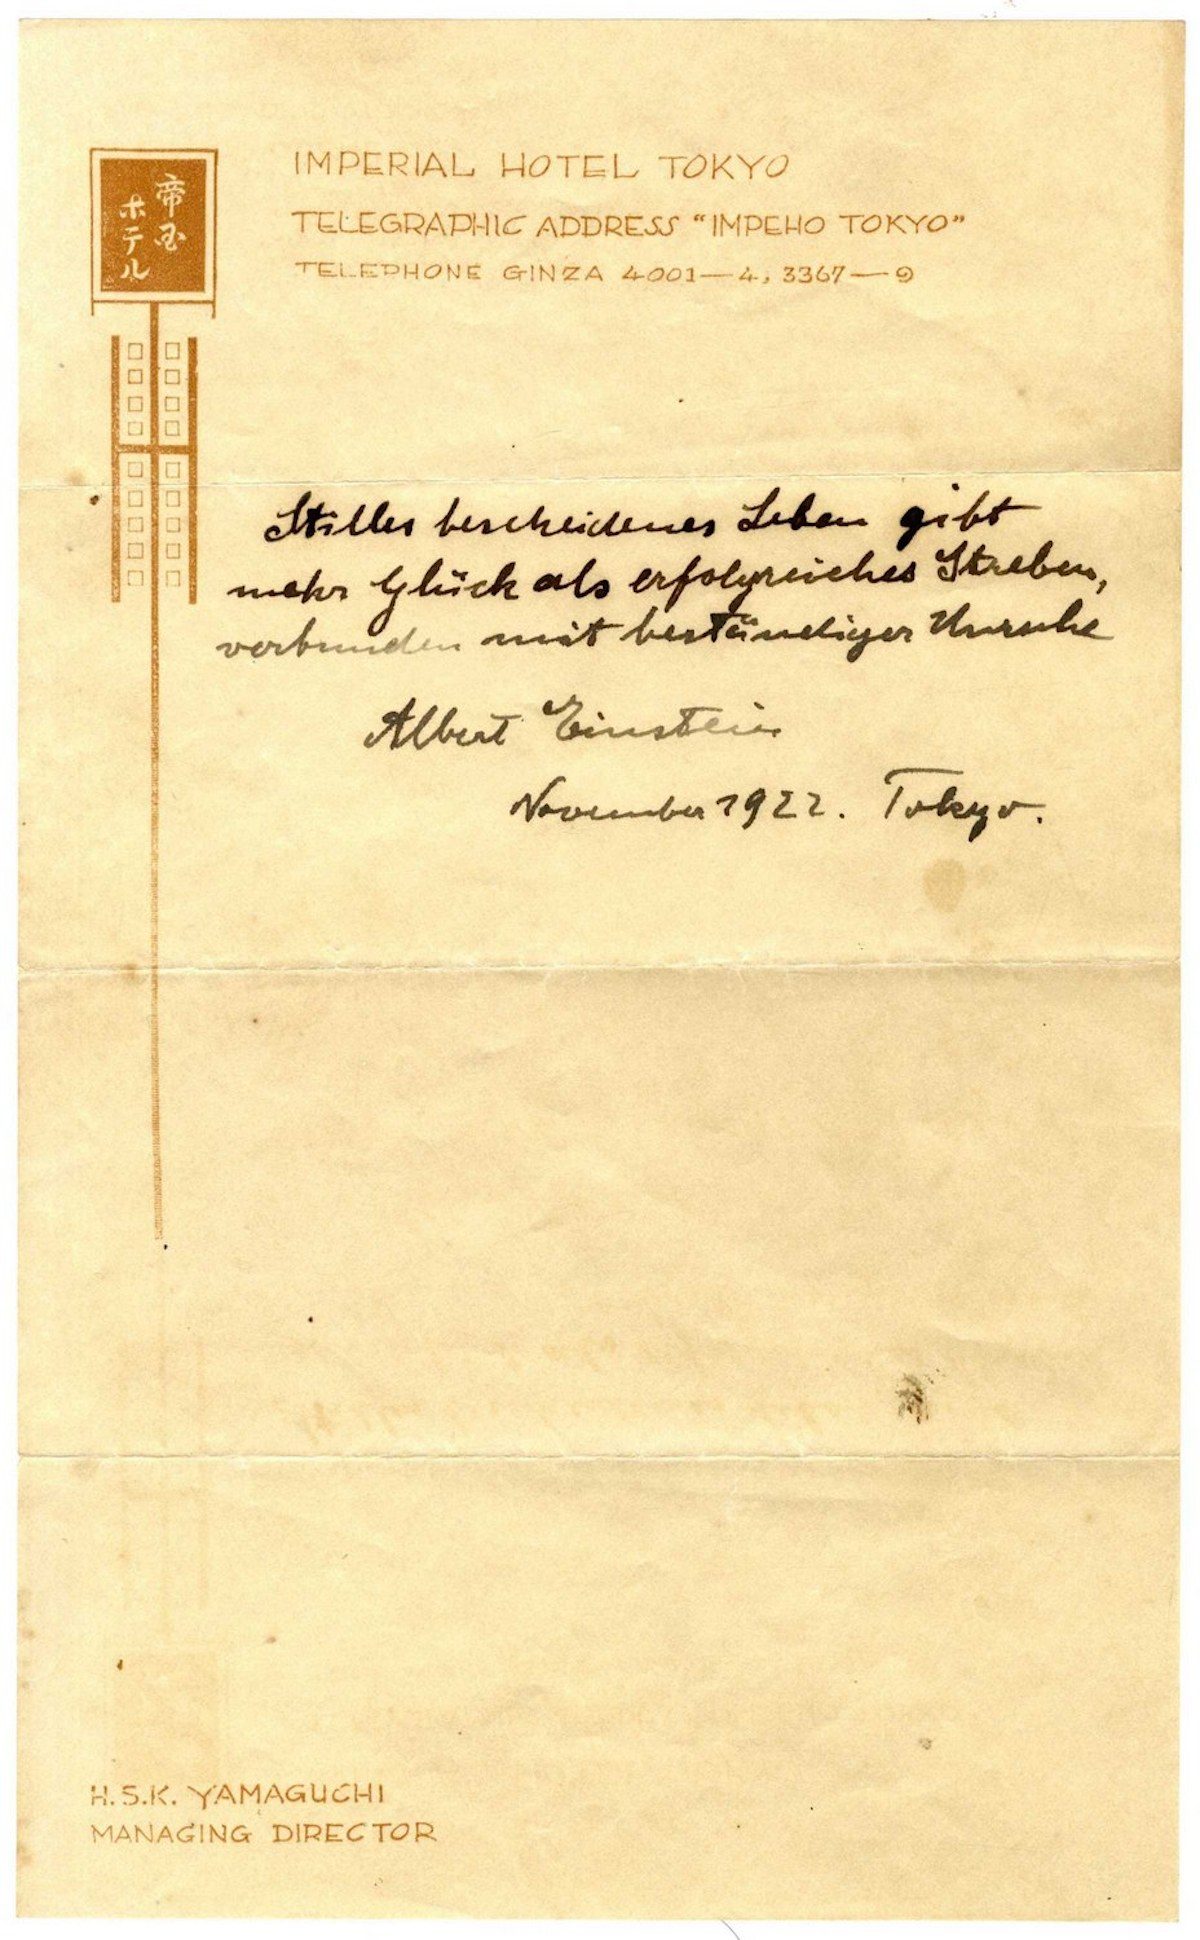 帝国
ホテル
IMPERIAL HOTEL TOKYO
TELEGRAPHIC ADDRESS "IMPEHO TOKYO"
TELEPHONE GINZA 4001—4, 3367—9
Stilles bescheidenes Leben gibt
mehr Glück als erfolgreiches Streben,
verbunden mit beständiger Unruhe
Albert Einstein
November 1922. Tokyo.
H.S.K. YAMAGUCHI
MANAGING DIRECTOR